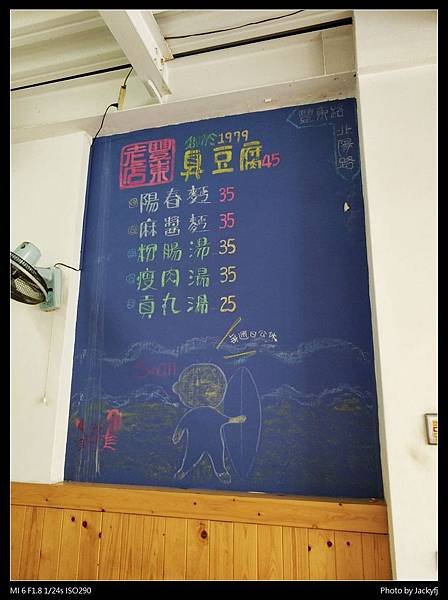 豐東路
北陽路
創於1979
豐東
老店
臭豆腐45
陽春麵 35
麻醬麵 35
粉腸湯 35
瘦肉湯 35
貢丸湯 25
每週日公休
MI 6 F1.8 1/24s ISO290
Photo by Jackyfj